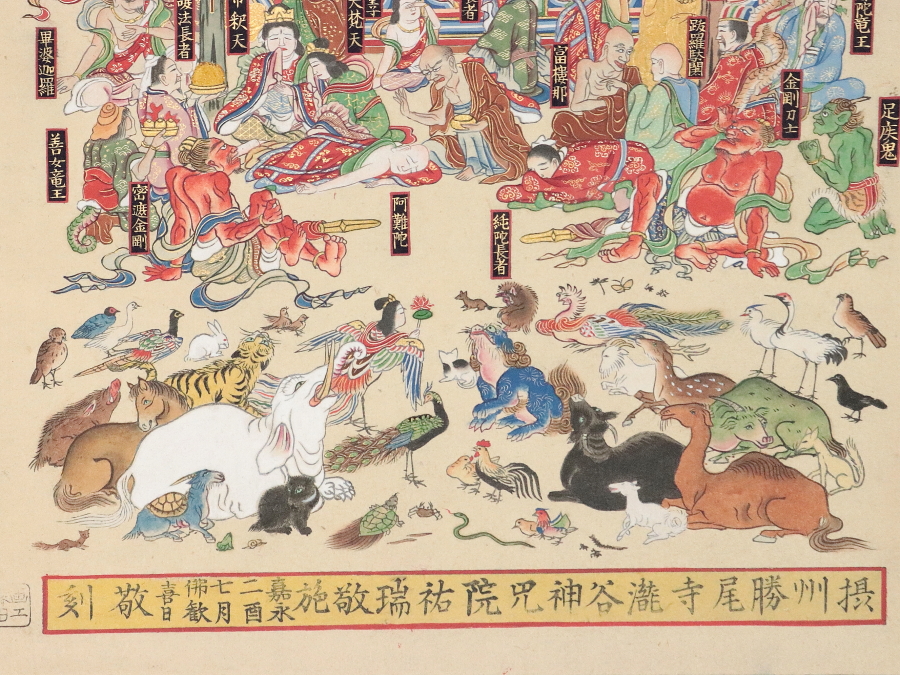 畢婆迦羅
護法長者
帝釈天
大梵天
者
富樓那
跋羅駄闍
陀竜王
金剛刀士
足疾鬼
善女竜王
密遮金剛
阿難陀
純陀長者
摂州勝尾寺瀧谷神咒院祐瑞敬施
嘉永
二酉
七月
佛歓
喜日
敬刻
画工